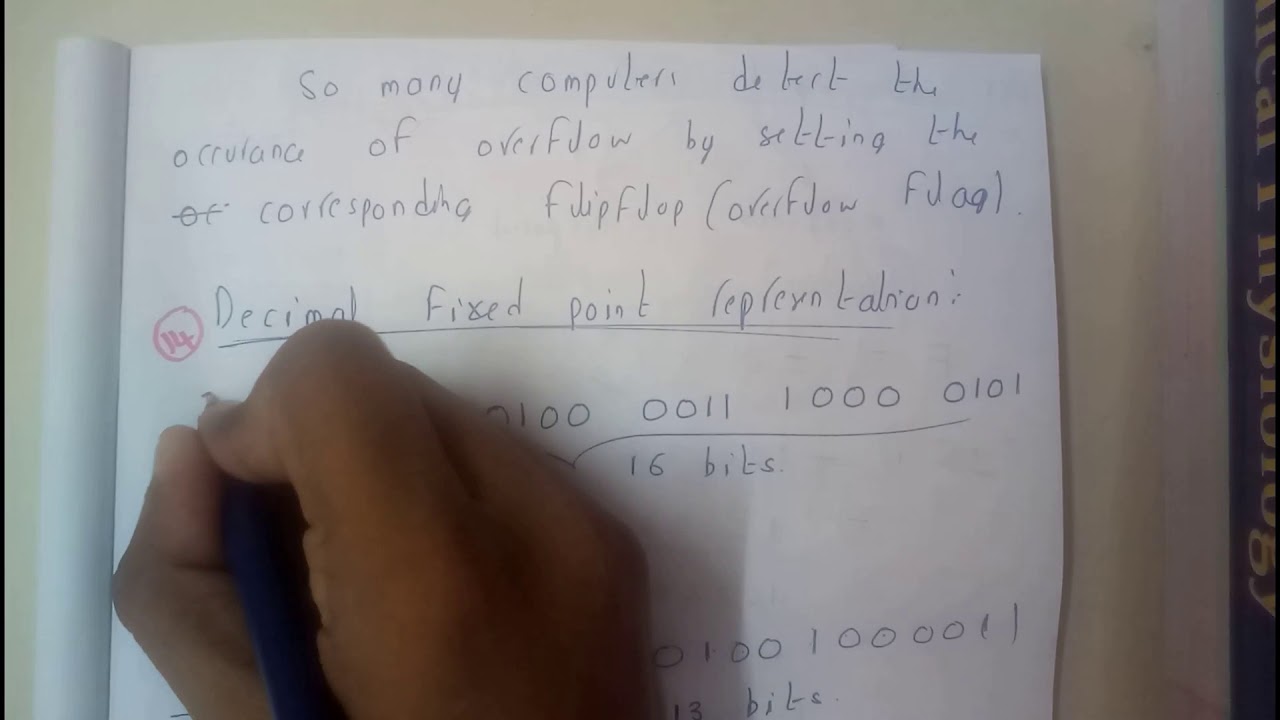 So many computers detect the
occurance of overflow by setting the
or corresponding flipflop (overflow Flag).
14 Decimal Fixed point representation:
0100 0011 1000 0101
16 bits.
0100 1 0000 1 1
13 bits.
Physiology